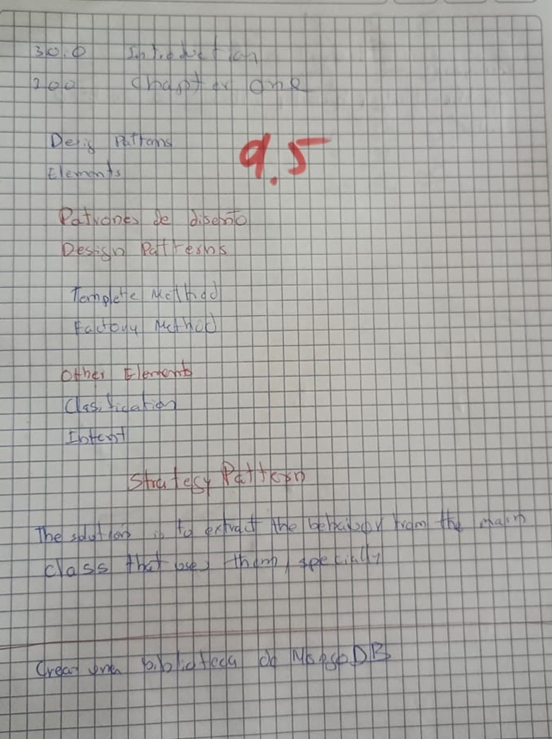 30.0 Introduction
200 Chapter one
Desig Pattrons
9.5
Elements
Patrones de diseño
Design Patterns
Template Method
Factory Method
Other Elements
Classification
Intent
Strategy Pattern
The solution is to extract the behaivor from the main
class that uses them, specially
Crear una biblioteca de MongoDB